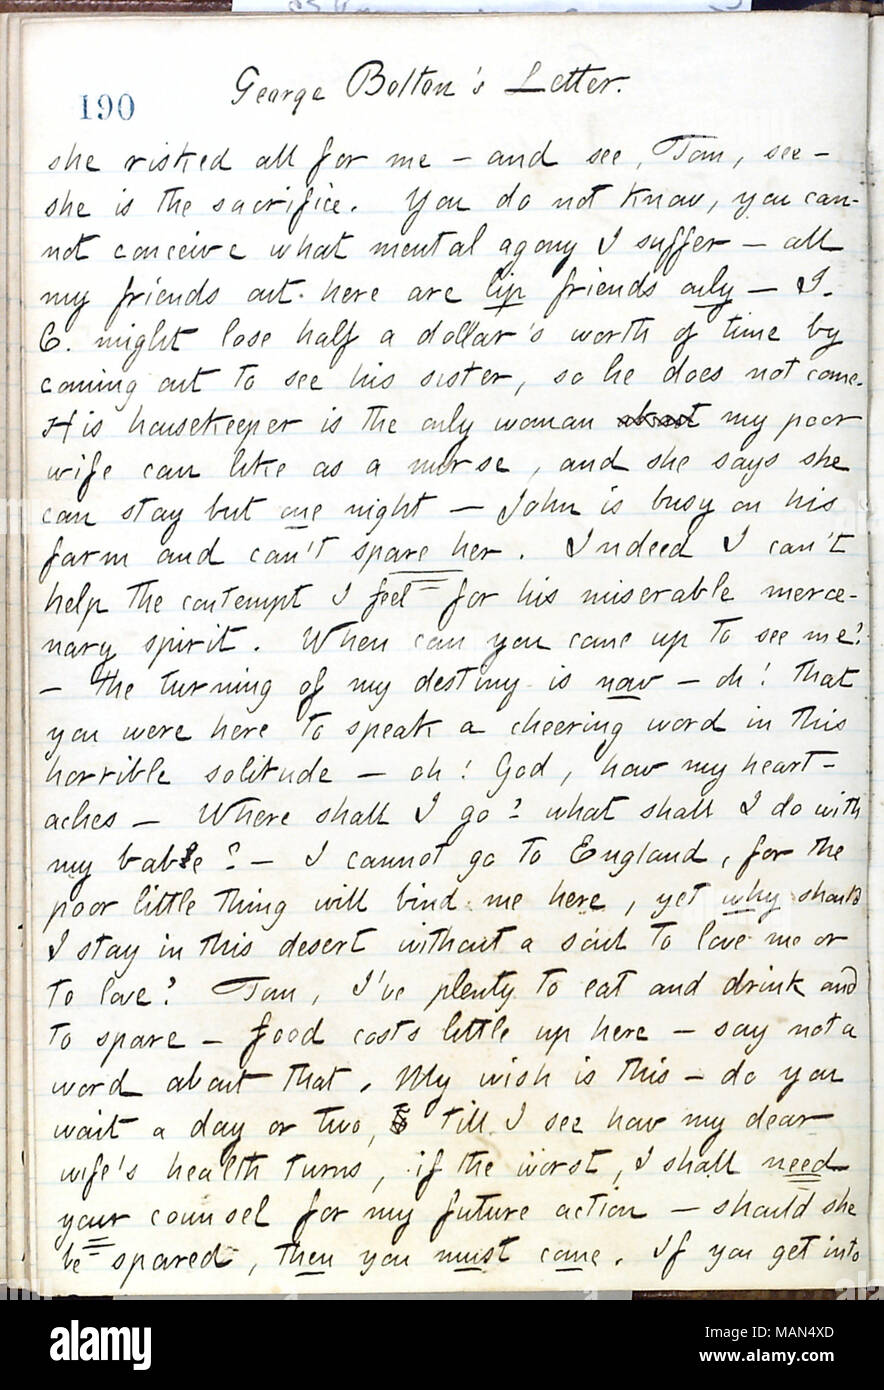 190
George Bolton's Letter.
she risked all for me — and see, Tom, see —
she is the sacrifice. You do not know, you can-
not conceive what mental agony I suffer — all
my friends out here are lip friends only — I.
C. might lose half a dollar's worth of time by
coming out to see his sister, so he does not come.
His housekeeper is the only woman my poor
wife can like as a nurse, and she says she
can stay but one night — John is busy on his
farm and can't spare her. Indeed I can't
help the contempt I feel for his miserable merce-
nary spirit. When can you come up to see me?
— the turning of my destiny is now — oh! that
you were here to speak a cheering word in this
horrible solitude — oh! God, how my heart-
aches — Where shall I go? what shall I do with
my babe? — I cannot go to England, for the
poor little thing will bind me here, yet why should
I stay in this desert without a soul to love me or
to love? Tom, I've plenty to eat and drink and
to spare — food costs little up here — say not a
word about that. My wish is this — do you
wait a day or two, till I see how my dear
wife's health turns, if the worst, I shall need
your counsel for my future action — should she
be spared, then you must come. If you get into
alamy
Image ID: MAN4XD
www.alamy.com